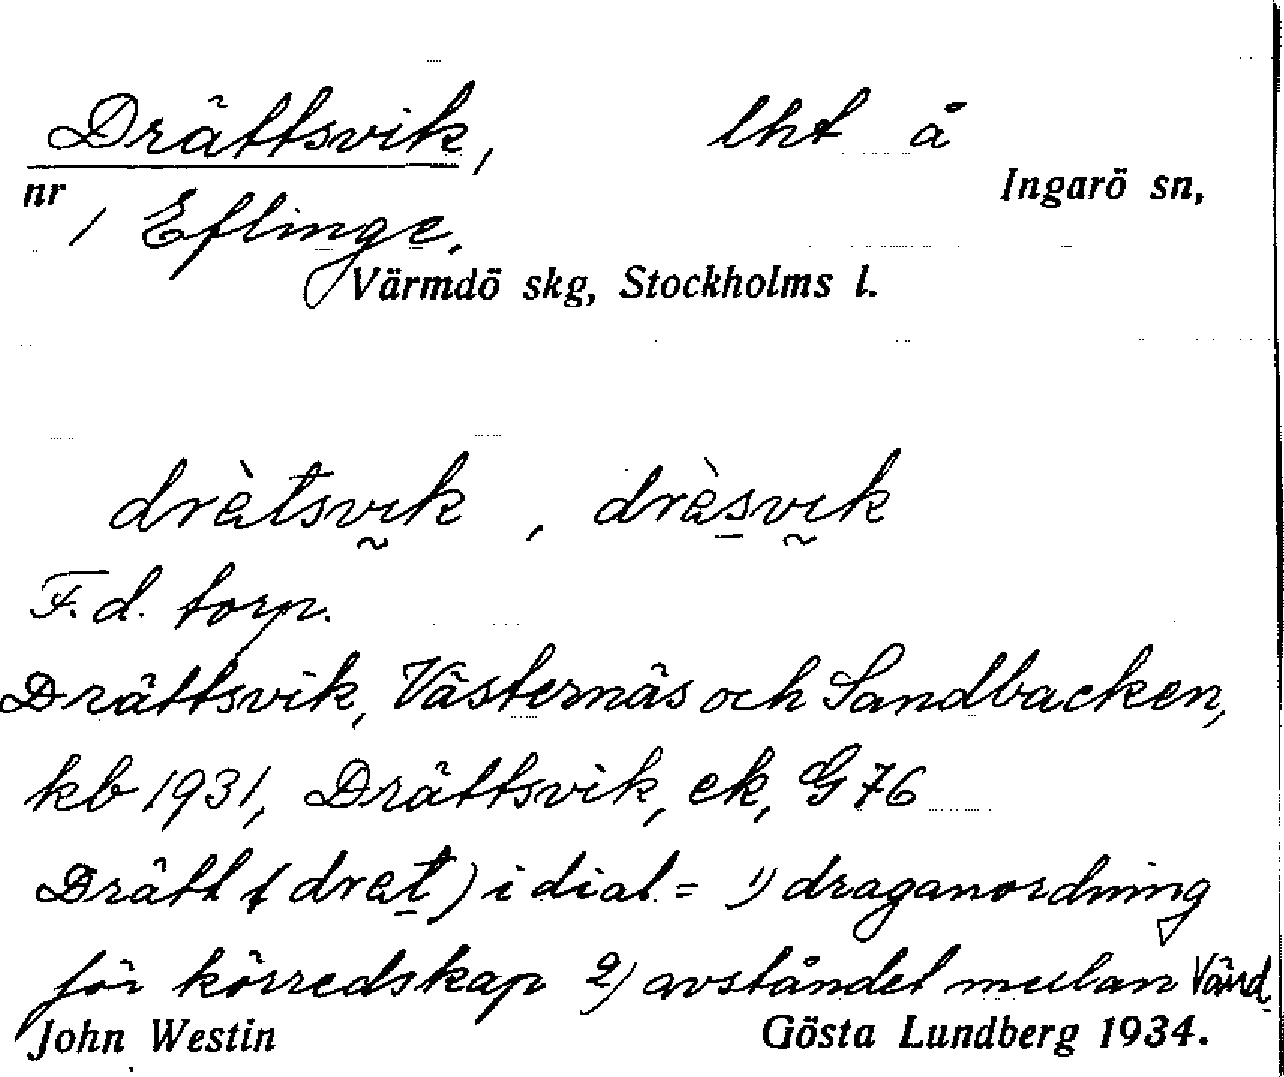 Drättsvik, lht å
Ingarö sn,
nr / Eflinge.
Värmdö skg, Stockholms l.
drètsvik, drèsvik
F.d. torp.
Drättsvik, Västernäs och Sandbacken,
kb 1931, Drättsvik, ek, G 76
Drätt f (dret) i dial. = 1) draganordning
för körredskap 2) avståndet mellan Vänd.
John Westin Gösta Lundberg 1934.